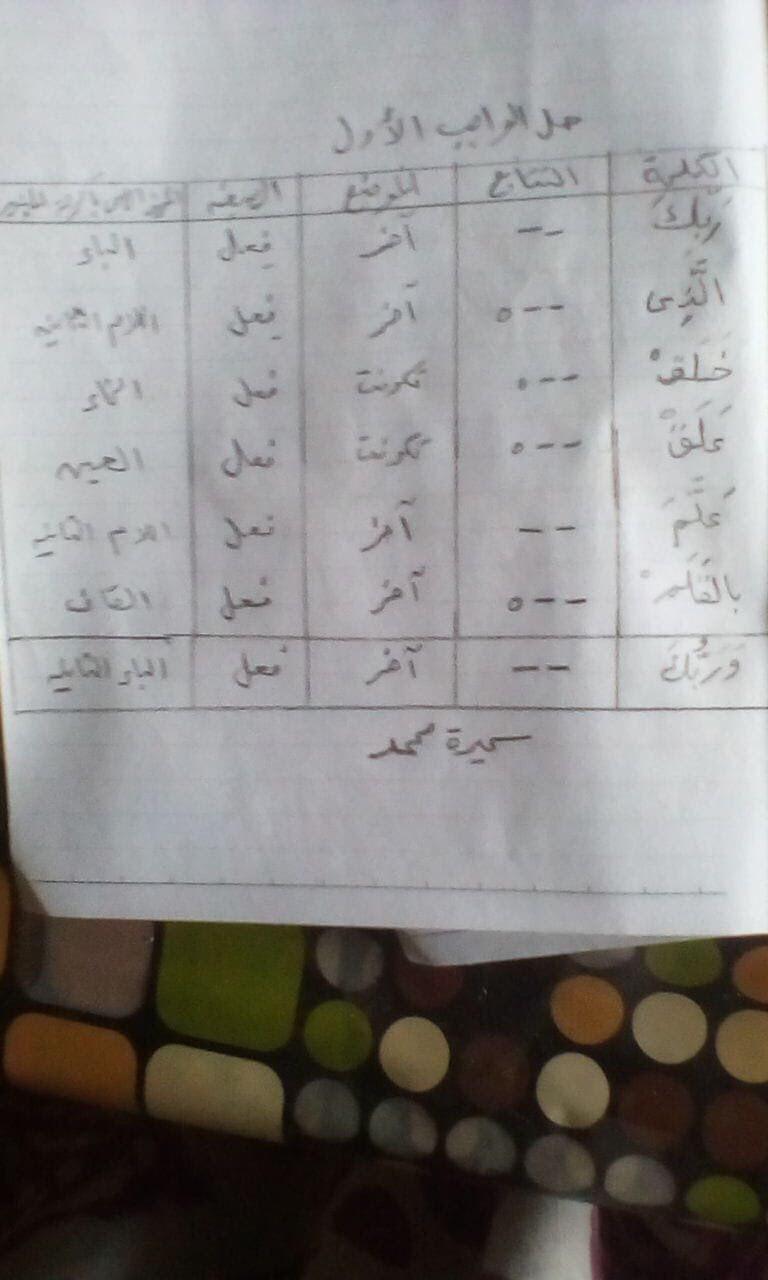 حل الواجب الأول
الكلمة التتابع الموضع الصفه
رَبِّكَ -- آخر فعل الباء
الَّذِى --o آخر فعل اللام الثانيه
خَلَقْ --o فعل
عَلَقْ --o فعل العين
عَلَّمَ -- آخر فعل اللام الثانيه
بالقَلَمْ --o آخر فعل القاف
وَرَبُّكَ -- آخر فعل الباء الثانيه
سميرة محمد